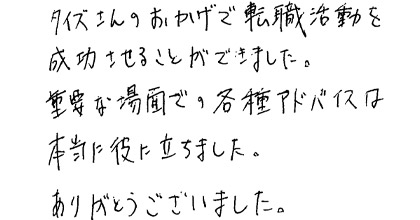 タイズさんのおかげで転職活動を
成功させることができました。
重要な場面での各種アドバイスは
本当に役に立ちました。
ありがとうございました。